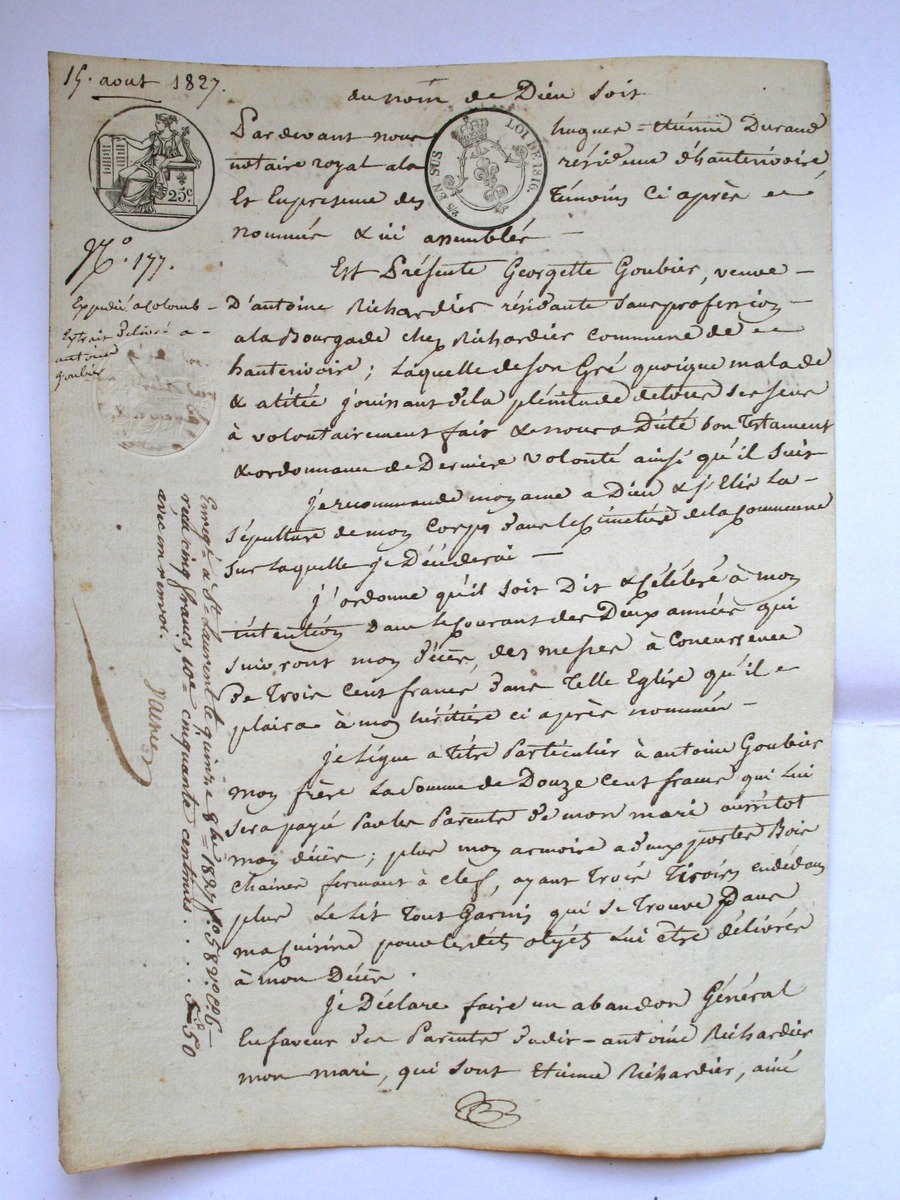 15. aout 1827.
au nom de Dieu soit
25 c
25 EN SUS
LOI DE 1816.
Pardevant nous hugues = etienne Durand
notaire royal ala résidence d'hauterivoire
Et Enpresence des témoins ci après
nommés & ici assemblés —
N.o 177.
Expédié a Colomb -
Extrait délivré a -
antoine
Goubier
Est Présente Georgette Goubier, veuve —
D'antoine Richardier résidante sans profession —
ala Bourgade chez Richardier commune de
hauterivoire; Laquelle de son Gré quoique malade
& alitée jouissant de la plénitude de tous ses sens
à volontairement fait & nous a Dicté son Testament
& ordonnance de Dernière volonté ainsi qu'il suit
je recommande mon ame a Dieu & j'Elis La -
sépulture de mon corps dans le cimetière de la commune
sur laquelle je Décéderai —
j'ordonne qu'il soit Dit & célébré à mon
intention dans le courant des Deux années qui
suivront mon décès, des messes à concurrence
De Trois cent francs dans Telle Eglise qu'il
plaira à mon héritière ci après nommée —
je Lègue a titre Particulier à antoine Goubier
mon frère La somme de Douze cent francs qui Lui
sera payé Par les Parents De mon mari aussitot
mon décès; plus mon armoire a deux portes Bois
chaine fermant à clef, ayant Trois Tiroirs endedans
plus Le Lit Tout Garnis qui se Trouve Dans
ma cuisine pour lesdits objets Lui être délivrés
à mon Décès.
je Déclare faire un abandon Général
En faveur des Parents dudit - antoine Richardier
mon mari, qui sont Etienne Richardier, ainé
Enreg.é à St Laurent le quinze 8bre 1827 f.o 58 v.o C. 6 —
reçu cinq francs, 10e cinquante centimes . . . . . 5f 50
avec un renvoi.